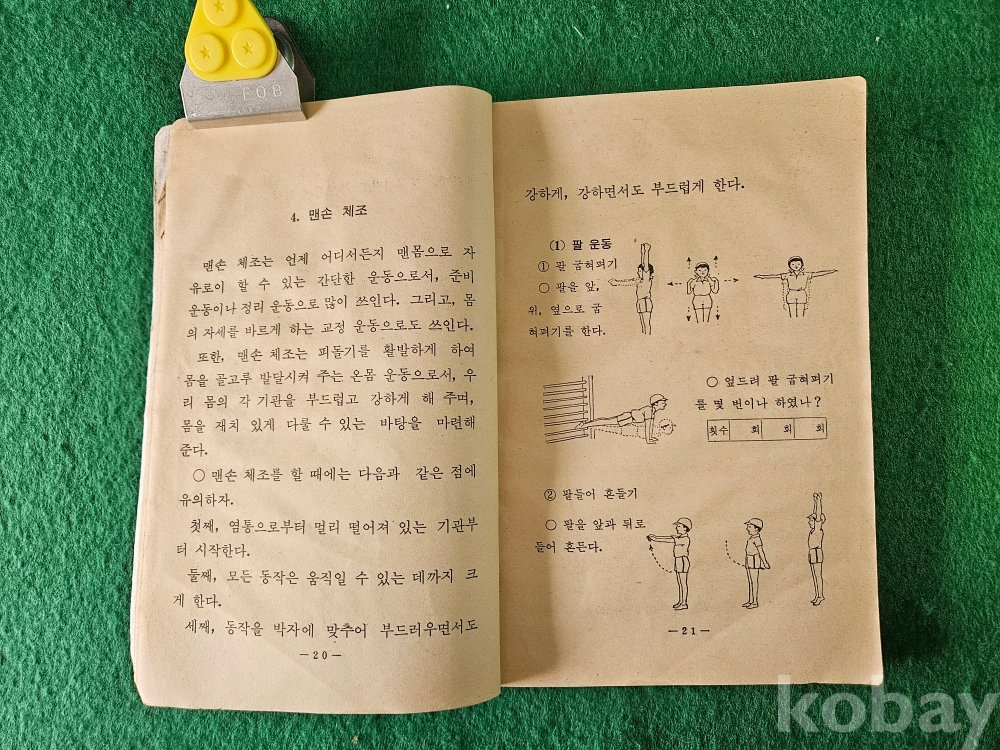 EOB
4. 맨손 체조
맨손 체조는 언제 어디서든지 맨몸으로 자
유로이 할 수 있는 간단한 운동으로서, 준비
운동이나 정리 운동으로 많이 쓰인다. 그리고, 몸
의 자세를 바르게 하는 교정 운동으로도 쓰인다.
또한, 맨손 체조는 피돌기를 활발하게 하여
몸을 골고루 발달시켜 주는 온몸 운동으로서, 우
리 몸의 각 기관을 부드럽고 강하게 해 주며,
몸을 재치 있게 다룰 수 있는 바탕을 마련해
준다.
○ 맨손 체조를 할 때에는 다음과 같은 점에
유의하자.
첫째, 염통으로부터 멀리 떨어져 있는 기관부
터 시작한다.
둘째, 모든 동작은 움직일 수 있는 데까지 크
게 한다.
세째, 동작을 박자에 맞추어 부드러우면서도
—20—
강하게, 강하면서도 부드럽게 한다.
(1) 팔 운동
① 팔 굽혀펴기
○ 팔을 앞,
위, 옆으로 굽
혀펴기를 한다.
○ 엎드려 팔 굽혀펴기
를 몇 번이나 하였나?
횟수 회 회 회
② 팔들어 흔들기
○ 팔을 앞과 뒤로
들어 흔든다.
—21—
kobay